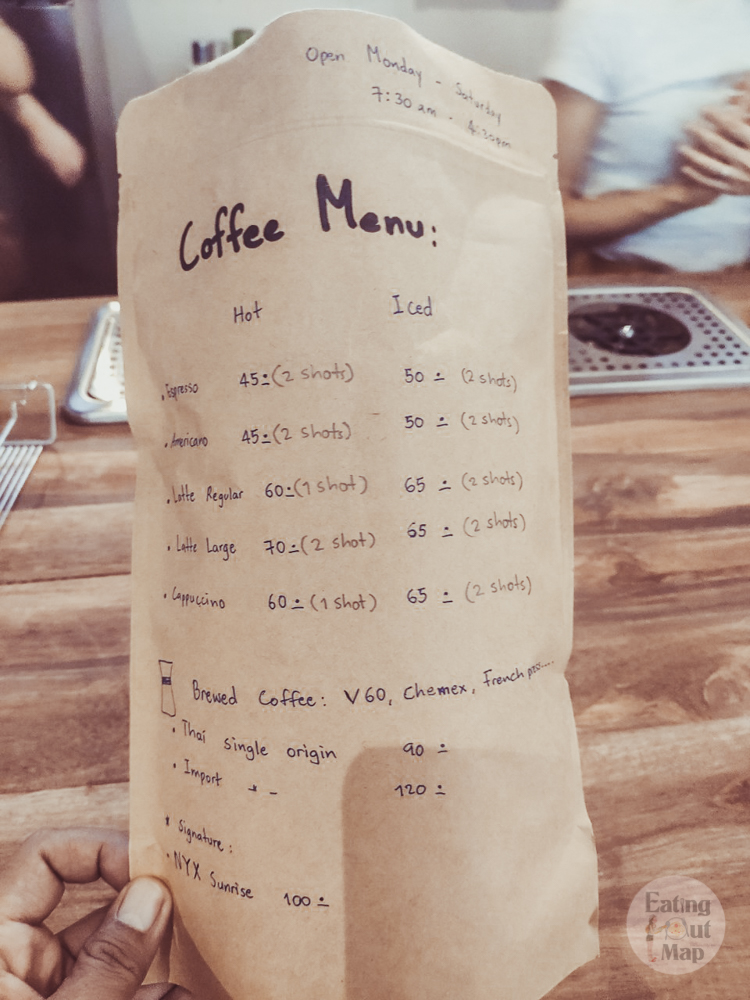 Open Monday - Saturday
7:30 am - 4:30pm
Coffee Menu:
Hot Iced
. Espresso 45.- (2 shots) 50.- (2 shots)
. Americano 45.- (2 shots) 50.- (2 shots)
. Latte Regular 60.- (1 shot) 65.- (2 shots)
. Latte Large 70.- (2 shot) 65.- (2 shots)
. Cappuccino 60.- (1 shot) 65.- (2 shots)
Brewed Coffee: V60, Chemex, French
. Thai single origin 90.-
. Import " - 120.-
* Signature:
. NYX Sunrise 100.-
Eating
Out
Map